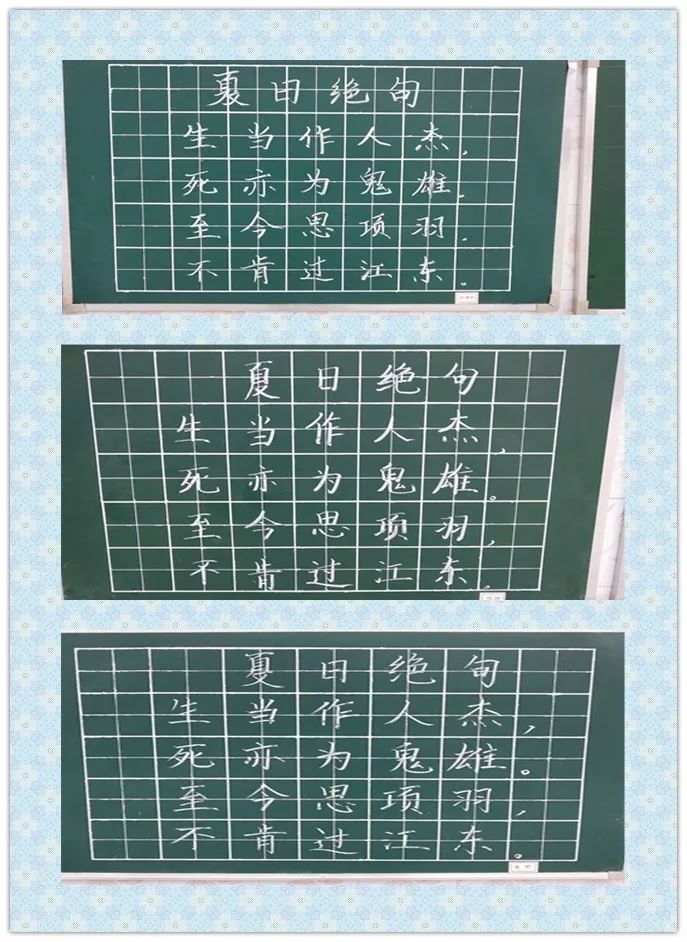 夏日绝句
生当作人杰，
死亦为鬼雄。
至今思项羽，
不肯过江东。
夏日绝句
生当作人杰，
死亦为鬼雄。
至今思项羽，
不肯过江东。
夏日绝句
生当作人杰，
死亦为鬼雄。
至今思项羽，
不肯过江东。